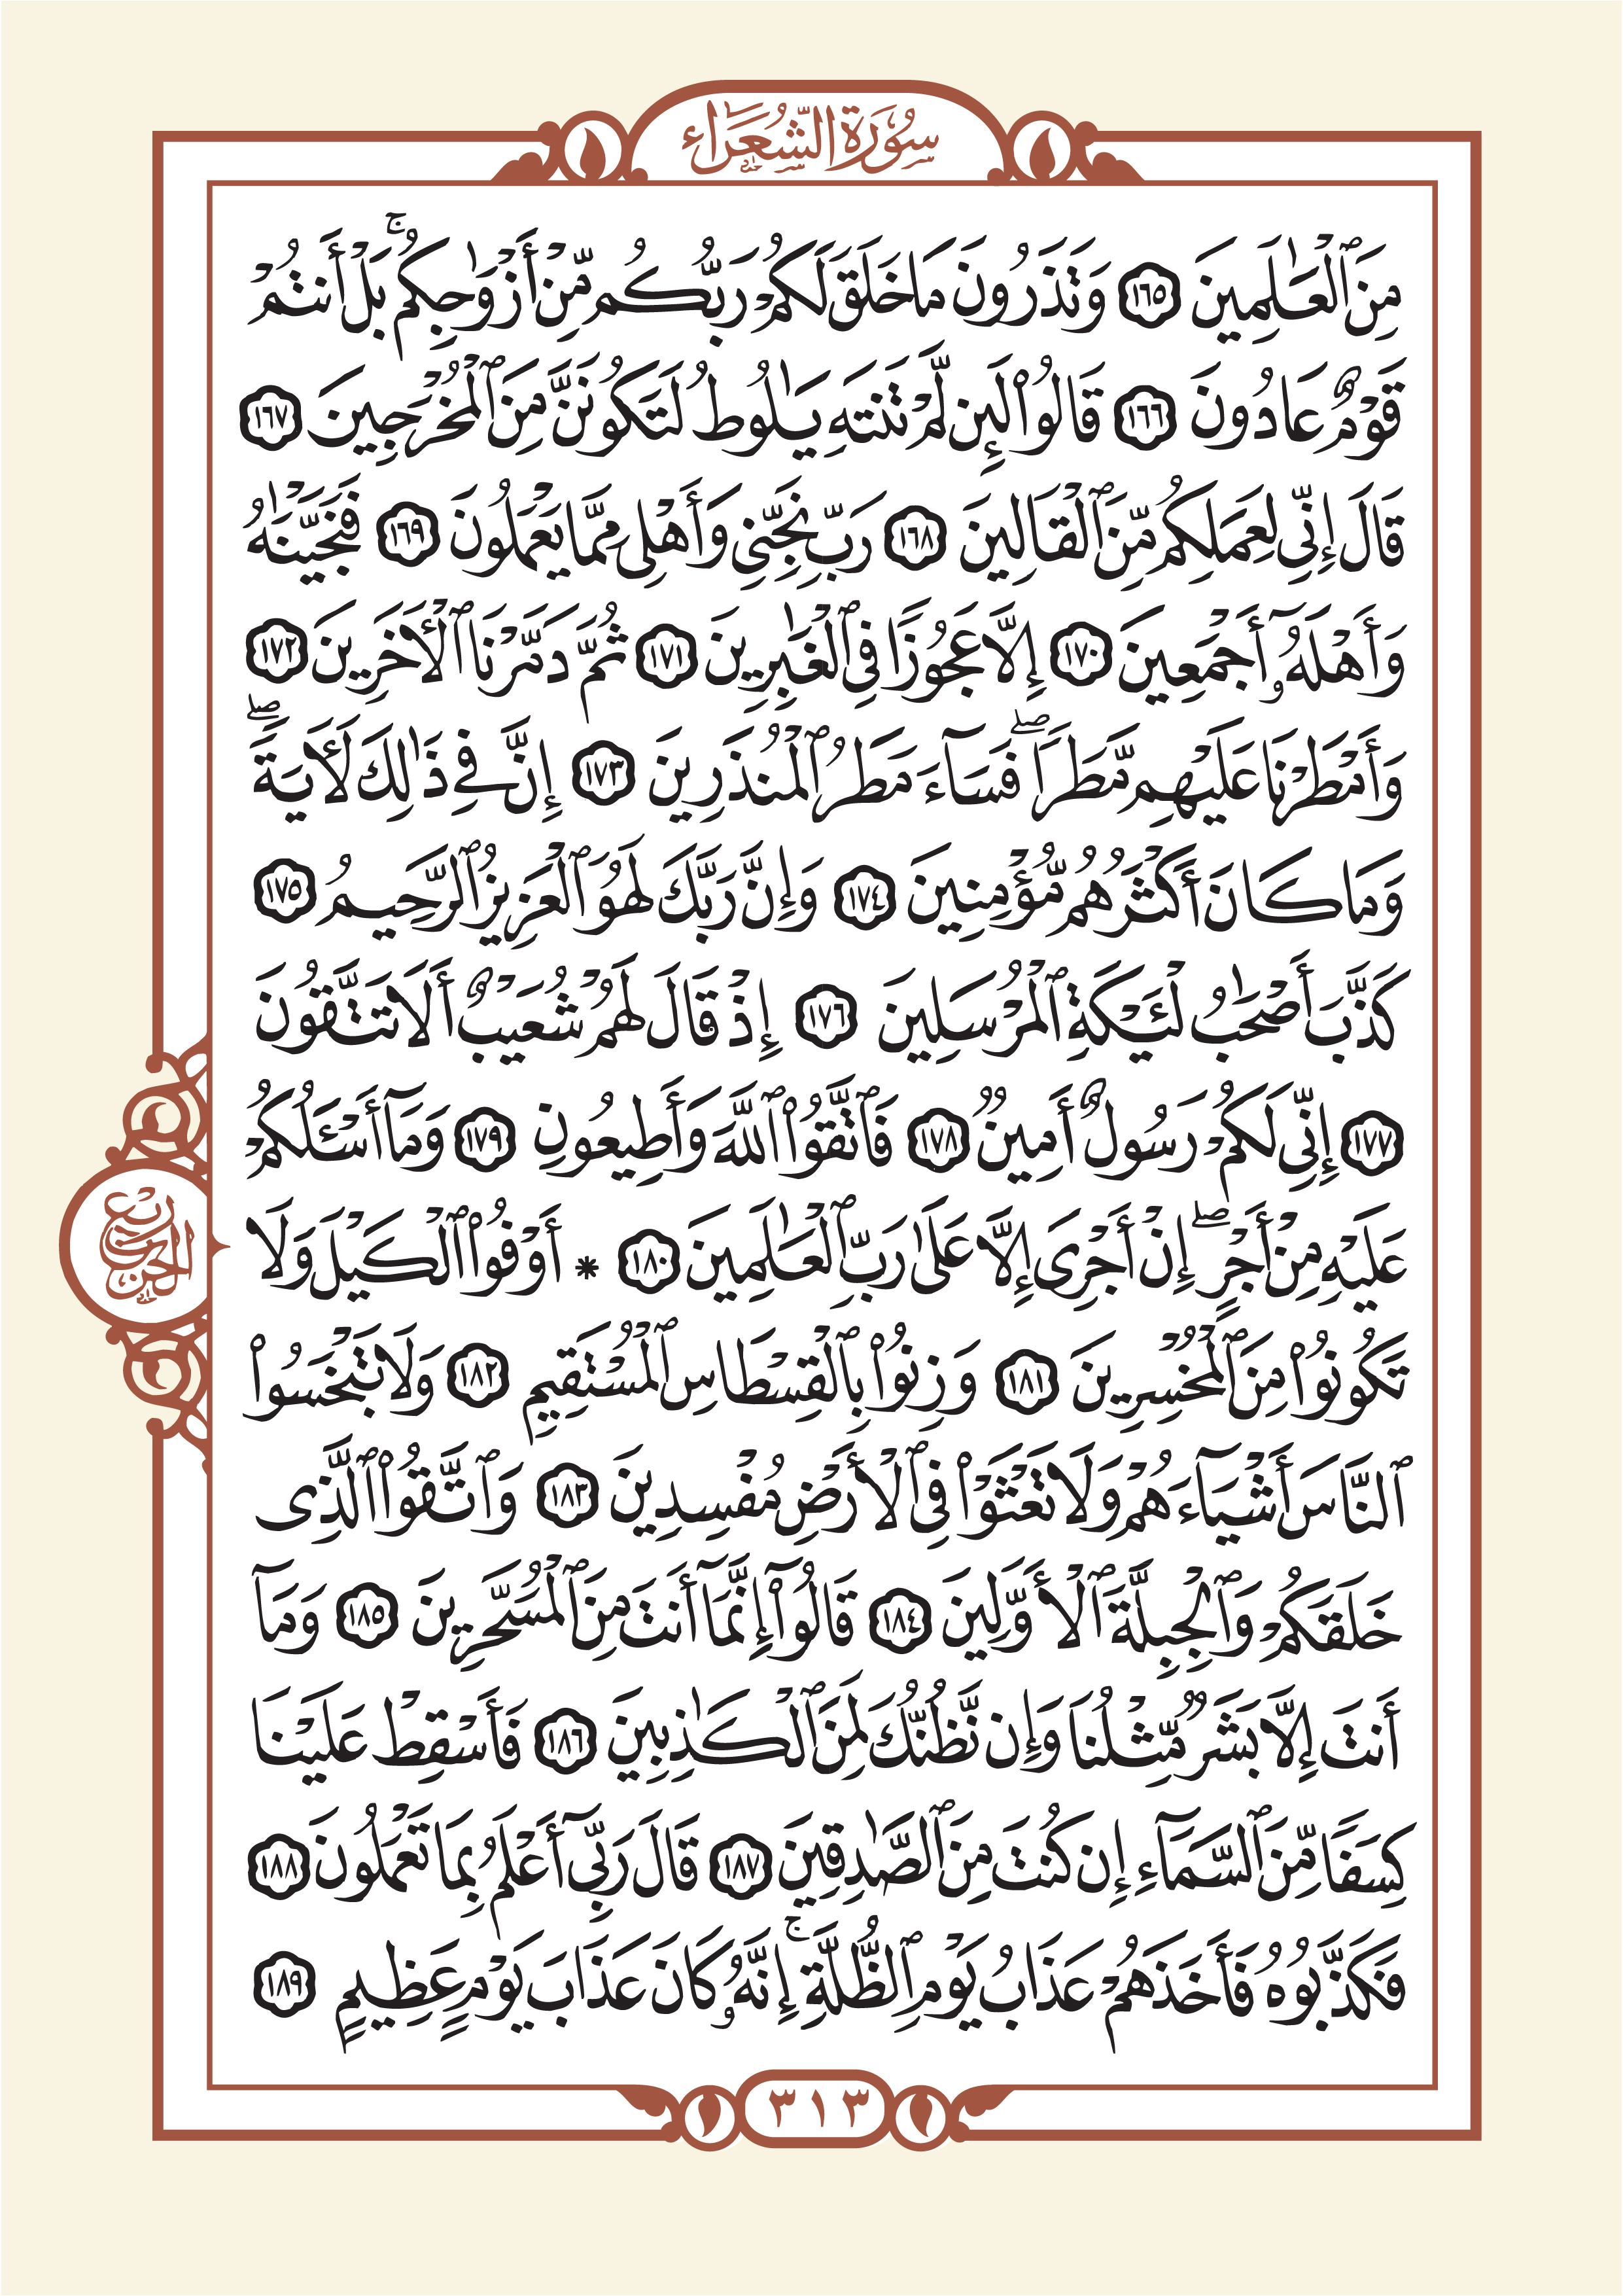 سُورَةُ الشُّعَرَاء
مِنَ ٱلْعَـٰلَمِينَ ١٦٥ وَتَذَرُونَ مَا خَلَقَ لَكُمْ رَبُّكُم مِّنْ أَزْوَٰجِكُمۚ بَلْ أَنتُمْ
قَوْمٌ عَادُونَ ١٦٦ قَالُوا۟ لَئِن لَّمْ تَنتَهِ يَـٰلُوطُ لَتَكُونَنَّ مِنَ ٱلْمُخْرَجِينَ ١٦٧
قَالَ إِنِّى لِعَمَلِكُم مِّنَ ٱلْقَالِينَ ١٦٨ رَبِّ نَجِّنِى وَأَهْلِى مِمَّا يَعْمَلُونَ ١٦٩ فَنَجَّيْنَـٰهُ
وَأَهْلَهُۥٓ أَجْمَعِينَ ١٧٠ إِلَّا عَجُوزًا فِى ٱلْغَـٰبِرِينَ ١٧١ ثُمَّ دَمَّرْنَا ٱلْأَخَرِينَ ١٧٢
وَأَمْطَرْنَا عَلَيْهِم مَّطَرًاۖ فَسَآءَ مَطَرُ ٱلْمُنذَرِينَ ١٧٣ إِنَّ فِى ذَٰلِكَ لَأَيَةًۖ
وَمَا كَانَ أَكْثَرُهُم مُّؤْمِنِينَ ١٧٤ وَإِنَّ رَبَّكَ لَهُوَ ٱلْعَزِيزُ ٱلرَّحِيمُ ١٧٥
كَذَّبَ أَصْحَـٰبُ لْـَٔيْكَةِ ٱلْمُرْسَلِينَ ١٧٦ إِذْ قَالَ لَهُمْ شُعَيْبٌ أَلَا تَتَّقُونَ
١٧٧ إِنِّى لَكُمْ رَسُولٌ أَمِينٌ ١٧٨ فَٱتَّقُوا۟ ٱللَّهَ وَأَطِيعُونِ ١٧٩ وَمَآ أَسْـَٔلُكُمْ
عَلَيْهِ مِنْ أَجْرٍۖ إِنْ أَجْرِىَ إِلَّا عَلَىٰ رَبِّ ٱلْعَـٰلَمِينَ ١٨٠ * أَوْفُوا۟ ٱلْكَيْلَ وَلَا
الحزب ربع
تَكُونُوا۟ مِنَ ٱلْمُخْسِرِينَ ١٨١ وَزِنُوا۟ بِٱلْقِسْطَاسِ ٱلْمُسْتَقِيمِ ١٨٢ وَلَا تَبْخَسُوا۟
ٱلنَّاسَ أَشْيَآءَهُمْ وَلَا تَعْثَوْا۟ فِى ٱلْأَرْضِ مُفْسِدِينَ ١٨٣ وَٱتَّقُوا۟ ٱلَّذِى
خَلَقَكُمْ وَٱلْجِبِلَّةَ ٱلْأَوَّلِينَ ١٨٤ قَالُوٓا۟ إِنَّمَآ أَنتَ مِنَ ٱلْمُسَحَّرِينَ ١٨٥ وَمَآ
أَنتَ إِلَّا بَشَرٌ مِّثْلُنَا وَإِن نَّظُنُّكَ لَمِنَ ٱلْكَـٰذِبِينَ ١٨٦ فَأَسْقِطْ عَلَيْنَا
كِسَفًا مِّنَ ٱلسَّمَآءِ إِن كُنتَ مِنَ ٱلصَّـٰدِقِينَ ١٨٧ قَالَ رَبِّىٓ أَعْلَمُ بِمَا تَعْمَلُونَ ١٨٨
فَكَذَّبُوهُ فَأَخَذَهُمْ عَذَابُ يَوْمِ ٱلظُّلَّةِۚ إِنَّهُۥ كَانَ عَذَابَ يَوْمٍ عَظِيمٍ ١٨٩
٣١٣